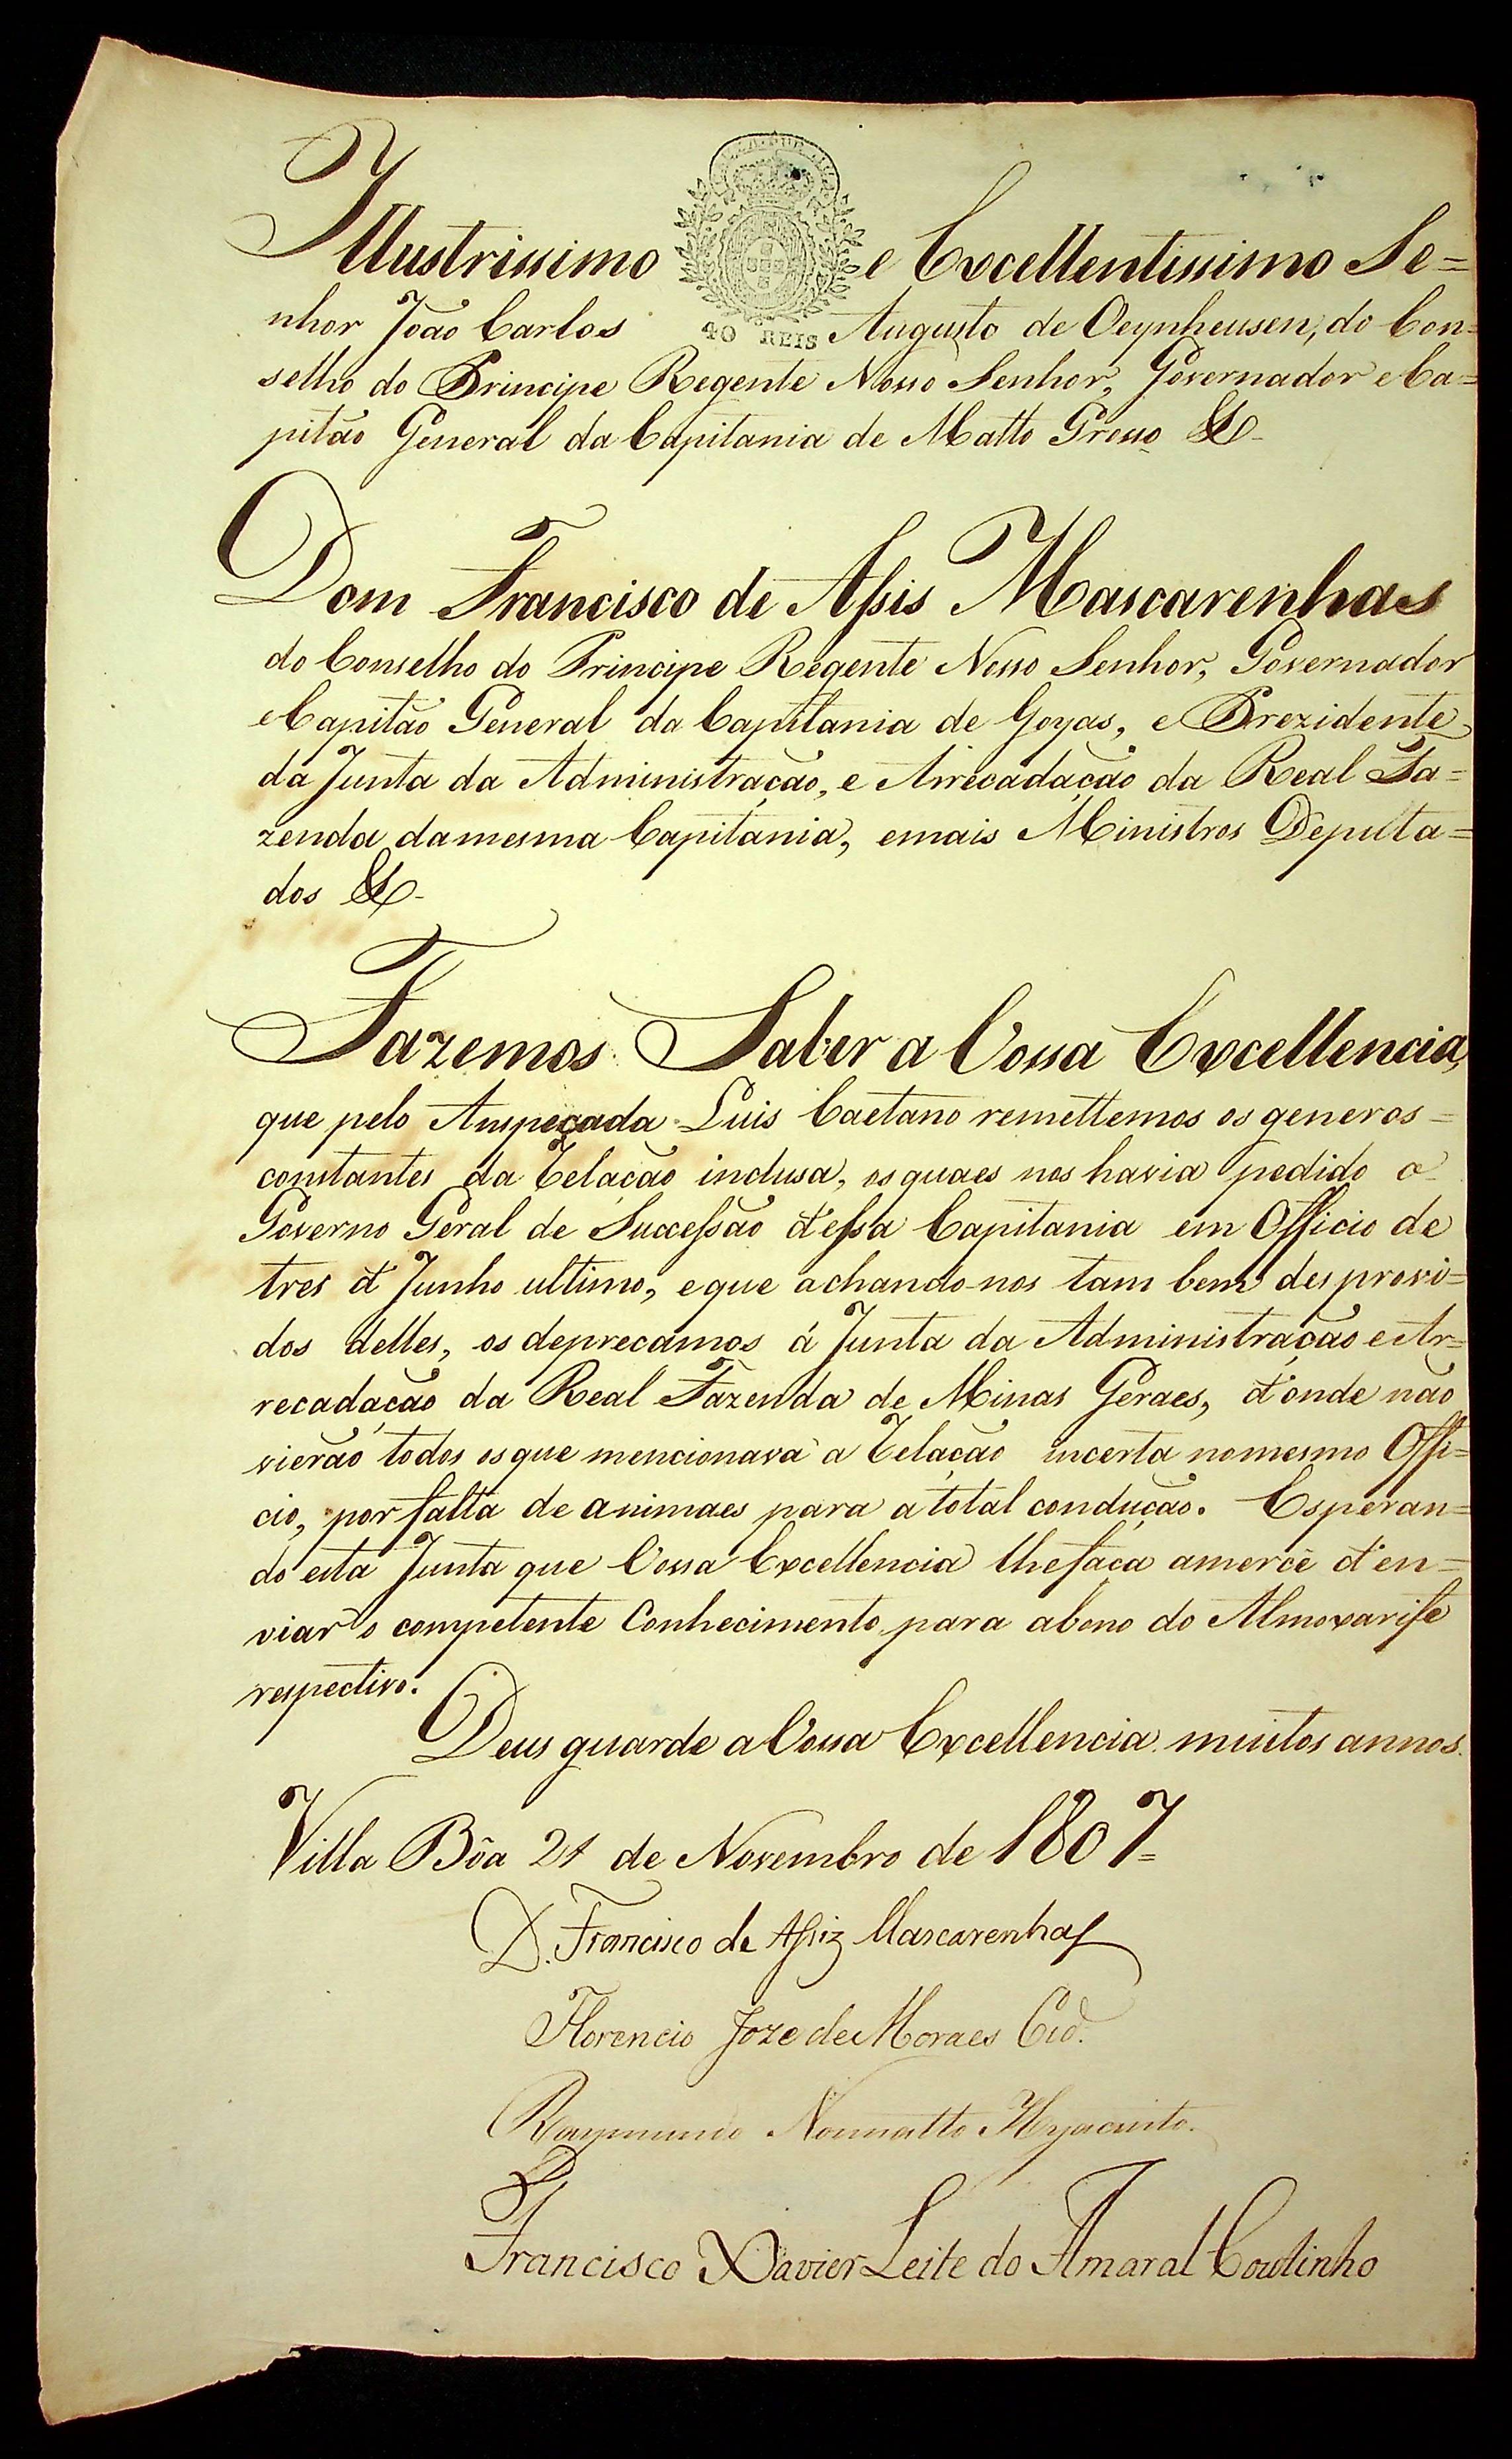 Illustrissimo e Excellentissimo Se=
nhor João Carlos Augusto de Oeynheusen, do Con=
40 REIS
selho do Principe Regente Nosso Senhor, Governador e Ca=
pitão General da Capitania de Matto Grosso &-
Dom Francisco de Assis Mascarenhas
do Conselho do Principe Regente Nosso Senhor, Governador
e Capitão General da Capitania de Goyas, e Prezidente
da Junta da Administração, e Arrecadação da Real Fa=
zenda damesma Capitania, emais Ministros Deputa=
dos &-
Fazemos Saber a Vossa Excellencia,
que pelo Anspeçada Luis Caetano remettemos os generos=
constantes da Relação inclusa, os quaes nos havia pedido o
Governo Geral de Successão d'essa Capitania em Officio de
tres d'Junho ultimo, eque achando-nos tam bem desprovi=
dos delles, os deprecamos á Junta da Administração e Ar=
recadação da Real Fazenda de Minas Geraes, d'onde não
vierão todos osque mencionava a Relação incerta nomesmo Offi=
cio, por falta de animaes para a total condução. Esperan=
do esta Junta que Vossa Excellencia lhefaça amercê d'en=
viar o competente Conhecimento para abono do Almoxarife
respectivo.
Deus guarde a Vossa Excellencia muitos annos.
Villa Bôa 21 de Novembro de 1807=
D. Francisco de Assiz Mascarenhas
Florencio Joze de Moraes Cid.
Raymundo Nonnatto Hyacinto.
Francisco Xavier Leite do Amaral Coutinho